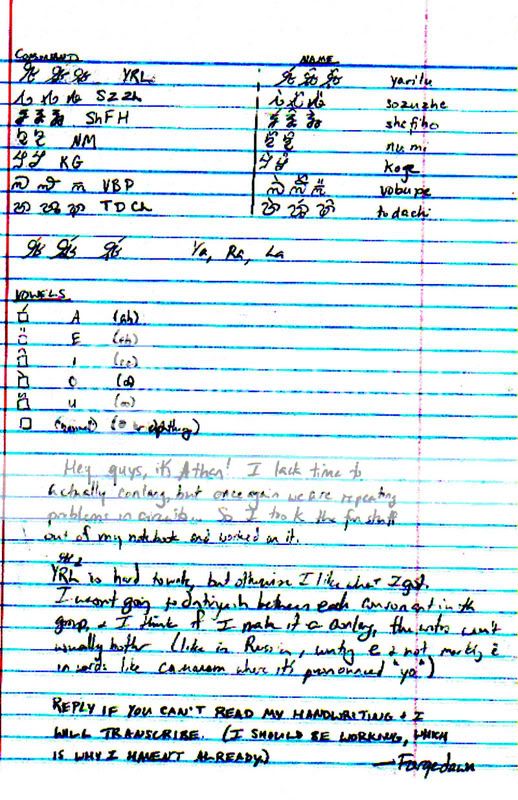 CONSONANT NAME
YRL yarilu
SZZh sozuzhe
ShFH shefiho
NM numi
KG koge
VBP vobupe
TDCh todachi
Ya, Ra, La
VOWELS
A (ah)
E (eh)
I (ee)
O (o)
U (oo)
(none) (or anything)
Hey guys, it's Athan! I lack time to
actually conlang, but once again we are repeating
problems in circuits... So I took the fun stuff
out of my notebook and worked on it.
YRL is hard to write, but otherwise I like what I got.
I wasn't going to distinguish between each consonant in the
group, & I think if I make it a conlang, the writers won't
usually bother (like in Russian, writing e & not marking ë
in words like where it's pronounced "yo")
REPLY IF YOU CAN'T READ MY HANDWRITING & I
WILL TRANSCRIBE. (I SHOULD BE WORKING, WHICH
IS WHY I HAVEN'T ALREADY.)
—Fargedawn